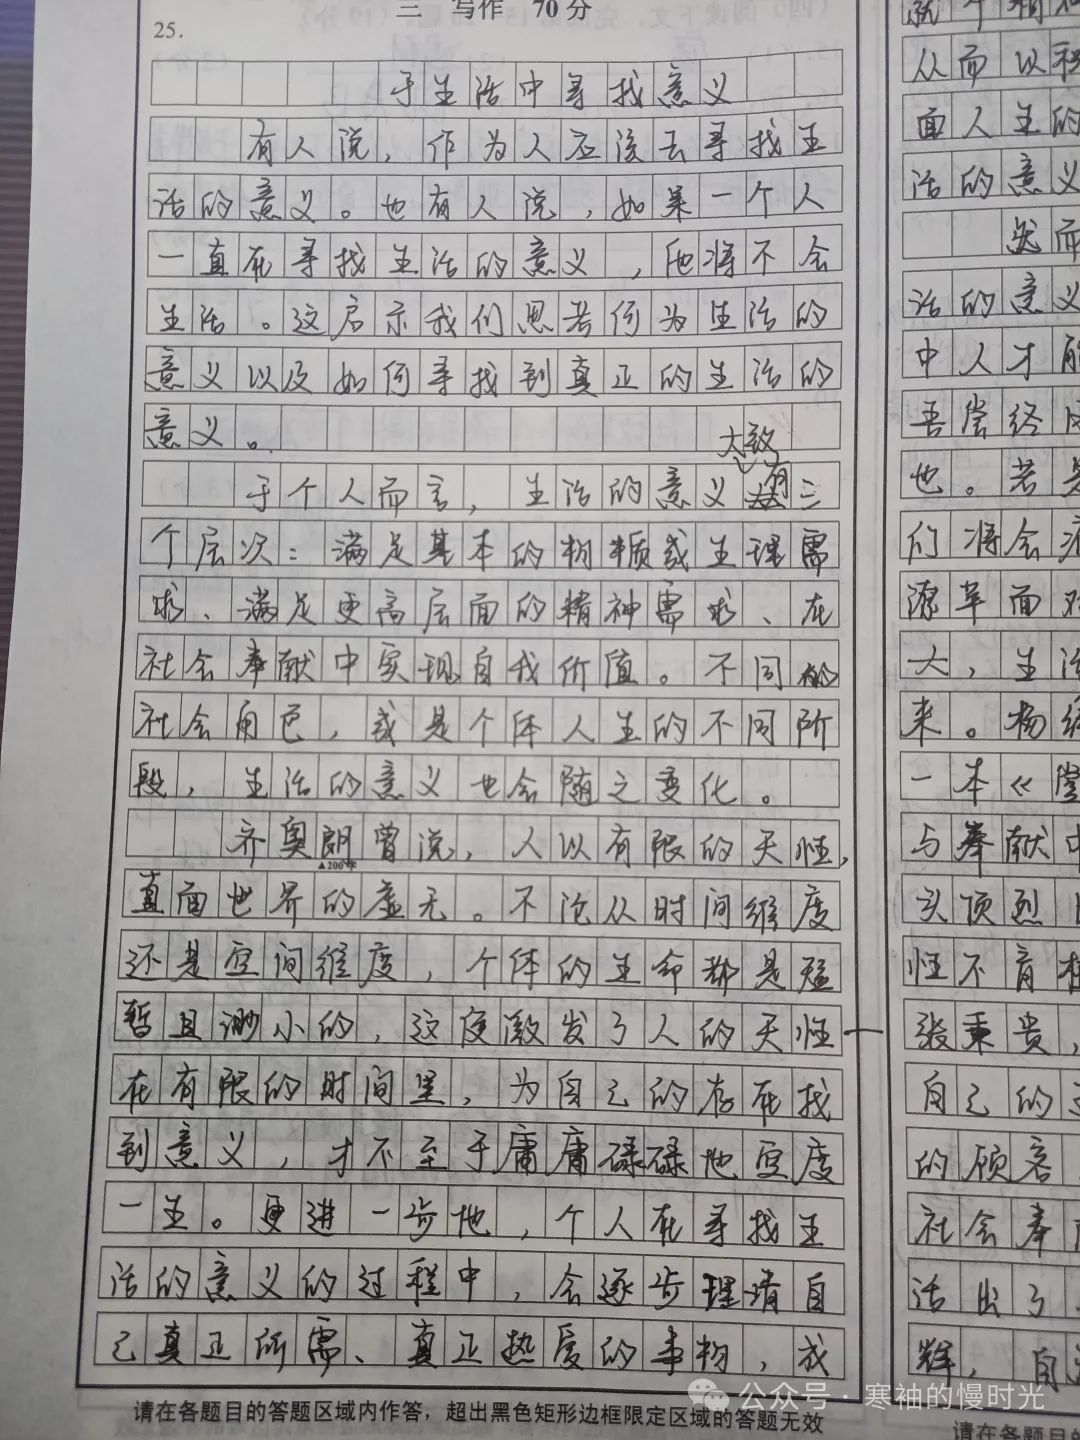 三 写作 70分
25.
于生活中寻找意义
有人说，作为人应该去寻找生
活的意义。也有人说，如果一个人
一直在寻找生活的意义，他将不会
生活。这启示我们思若何为生活的
意义以及如何寻找到真正的生活的
意义。
于个人而言，生活的意义大致有三
个层次：满足基本的物质或生理需
求、满足更高层面的精神需求、在
社会奉献中实现自我价值。不同的
社会角色，或是个体人生的不同阶
段，生活的意义也会随之变化。
齐奥朗曾说，人以有限的天性，
▲200字
直面世界的虚无。不论从时间维度
还是空间维度，个体的生命都是短
暂且渺小的，这便激发了人的天性——
在有限的时间里，为自己的存在找
到意义，才不至于庸庸碌碌地空度
一生。更进一步地，个人在寻找生
活的意义的过程中，会逐步理清自
己真正所需、真正热爱的事物，成
请在各题目的答题区域内作答，超出黑色矩形边框限定区域的答题无效
从而以积
面人生的
活的意义
然而
活的意义
中人才能
吾尝终
也。若是
们将会
潦草面对
大，生活
来。杨绛
一本《堂
与奉献中
头顶烈日
性不育
张秉贵，
自己的
的顾客
社会奉
活出了
辉，自
请在各题目的
公众号·寒袖的慢时光